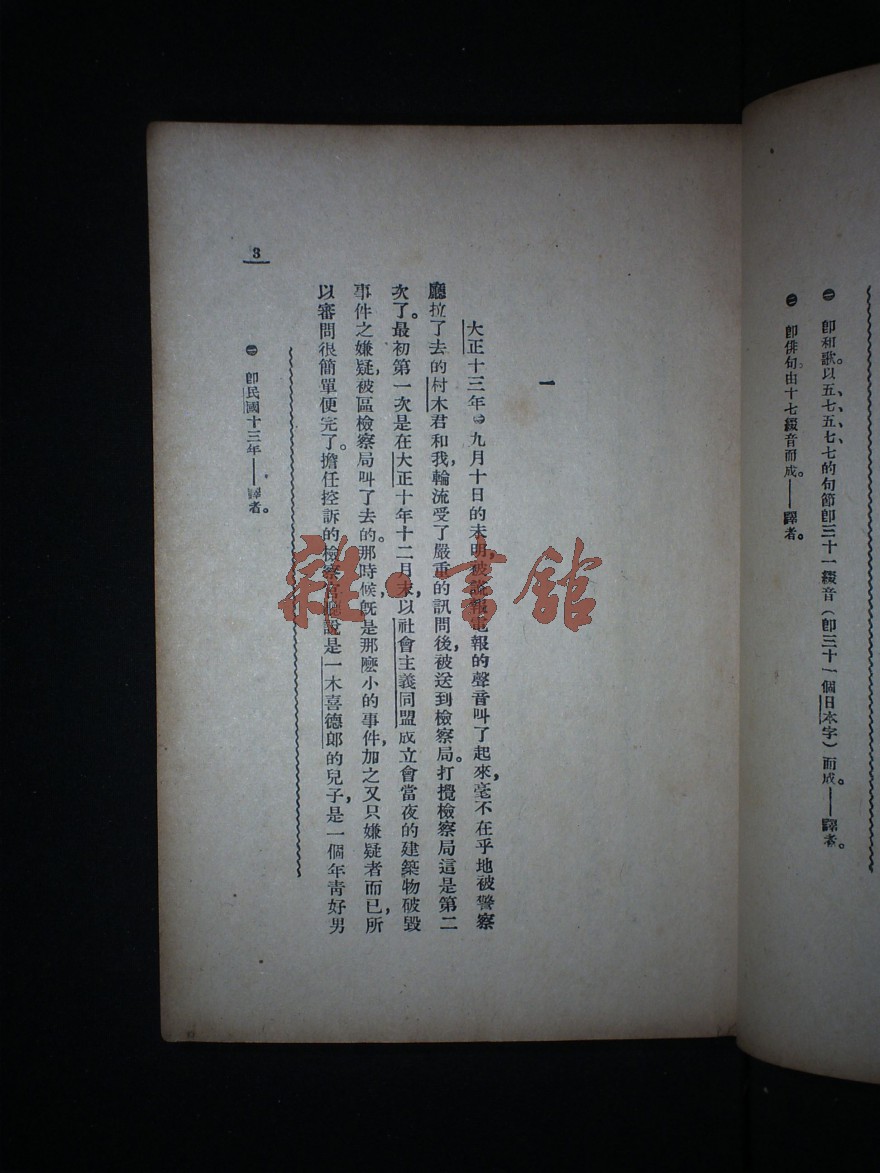 ㊀ 即和歌。以五、七、五、七、七的句節即三十一綴音(即三十一個日本字)而成。——譯者。
㊁ 即俳句。由十七綴音而成。——譯者。
一
大正十三年㊀九月十日的未明,被 電報的聲音叫了起來,毫不在乎地被警察
廳拉了去的村木君和我,輪流受了嚴重的訊問後,被送到檢察局。打攪檢察局這是第二
次了。最初第一次是在大正十年十二月末,以社會主義同盟成立會當夜的建築物破毀
事件之嫌疑,被區檢察局叫了去的。那時候,旣是那麼小的事件,加之又只嫌疑者而已,所
以審問很簡單便完了。擔任控訴的檢察官 說是一木喜德郎的兒子,是一個年靑好男
㊀ 即民國十三年——譯者。
3
雜·書館